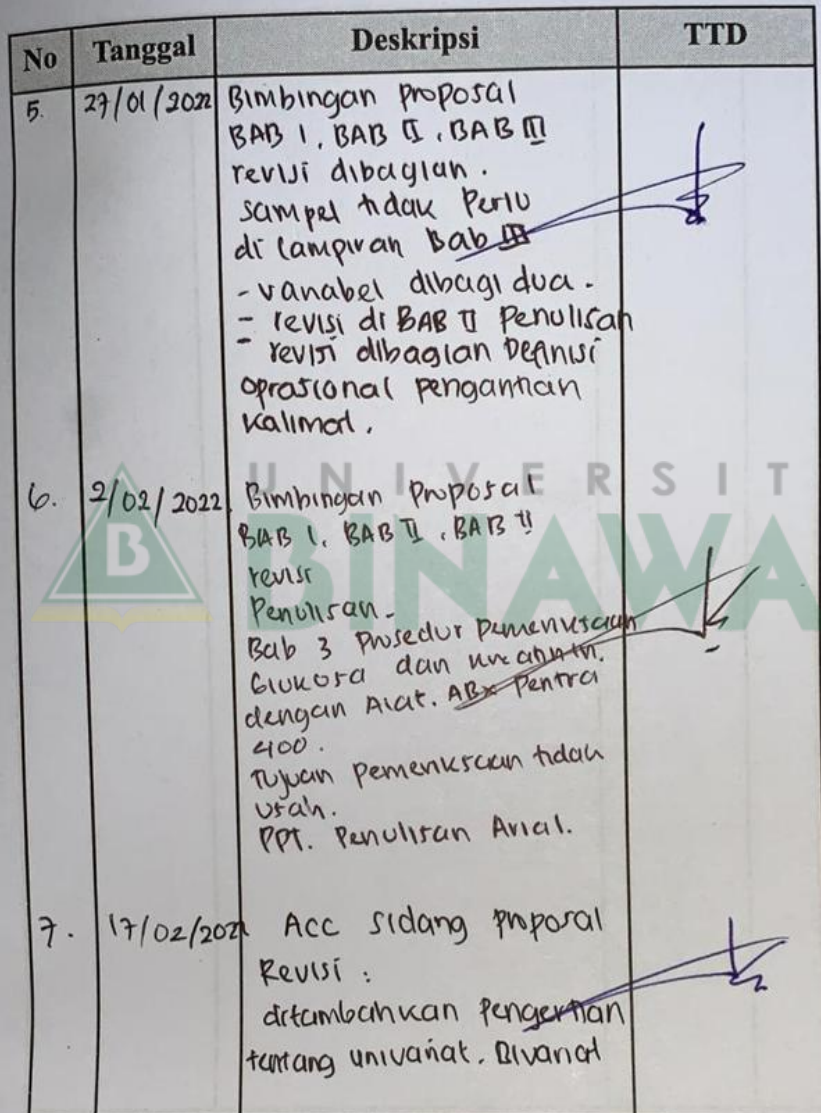 No Tanggal Deskripsi TTD
5. 27/01/2022 Bimbingan proposal
BAB I, BAB II, BAB III
revisi dibagian.
sampel tidak Perlu
di lampiran Bab III
- variabel dibagi dua.
- revisi di BAB II Penulisan
- revisi dibagian Definisi
oprasional pengantian
kalimat.
6. 2/02/2022 Bimbingan Proposal
BAB I, BAB II, BAB II
revisi
Penulisan -
Bab 3 Prosedur Pemeriksaan
Glukosa dan
dengan Alat. ABx Pentra
400.
Tujuan pemeriksaan tidak
usah.
PPT. Penulisan Arial.
UNIVERSIT
B BINAWA
7. 17/02/202 Acc sidang proposal
Revisi :
ditambahkan Pengertian
tentang univariat. Bivariat